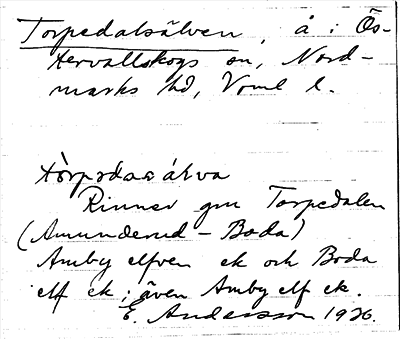 Torpedalsälven, å i Ös-
tervallskogs sn, Nord-
marks hd, Vrml l.
tòrpədas ä̀lva
Rinner gm Torpedalen
(Amunderud - Boda)
Amby elfven ek och Boda
elf ek; även Amby elf ek.
E. Andersson 1926.